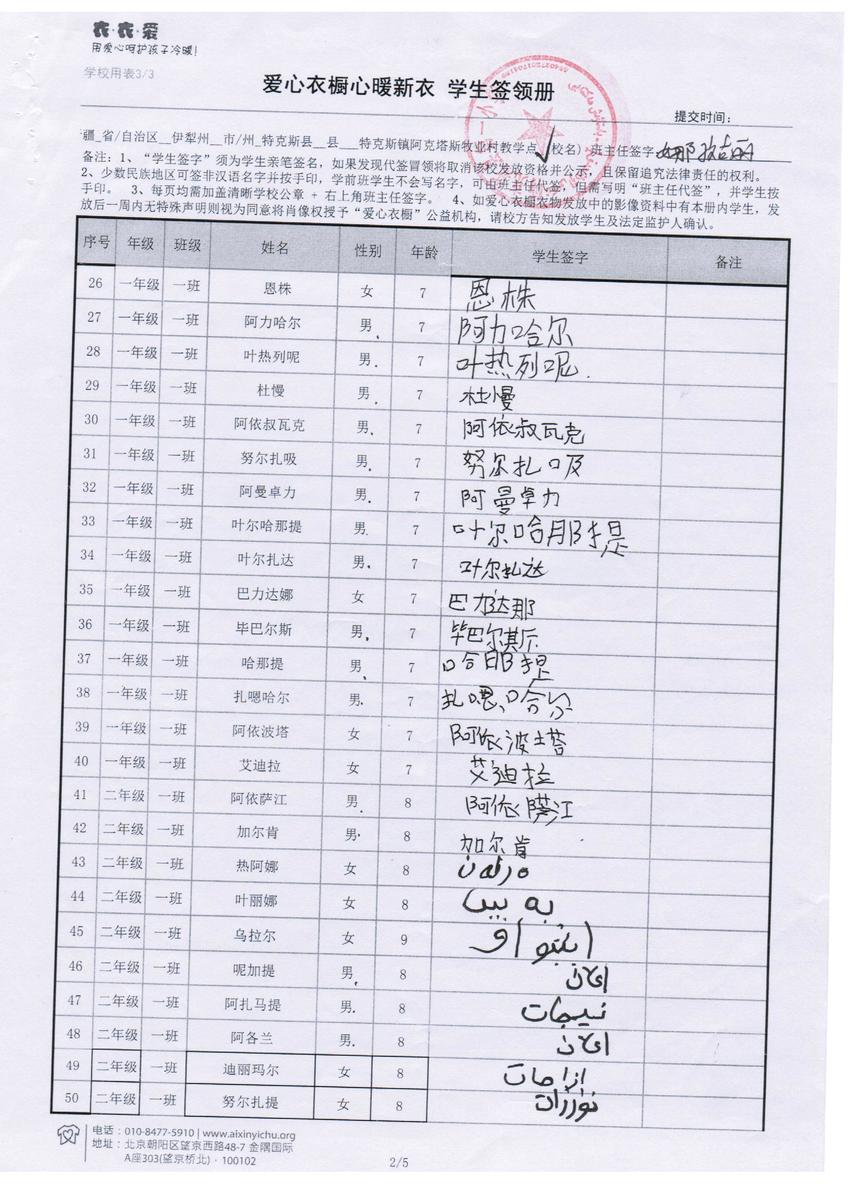 衣·衣·爱
用爱心呵护孩子冷暖!
学校用表3/3
爱心衣橱心暖新衣 学生签领册
提交时间:
疆_省/自治区__伊犁州__市/州_特克斯县__县___特克斯镇阿克塔斯牧业村教学点(校名) 班主任签字
备注:1、“学生签字”须为学生亲笔签名,如果发现代签冒领将取消该校发放资格并公示,且保留追究法律责任的权利。
2、少数民族地区可签非汉语名字并按手印,学前班学生不会写名字,可由班主任代签,但需写明“班主任代签”,并学生按
手印。 3、每页均需加盖清晰学校公章 + 右上角班主任签字。 4、如爱心衣橱衣物发放中的影像资料中有本册内学生,发
放后一周内无特殊声明则视为同意将肖像权授予“爱心衣橱”公益机构,请校方告知发放学生及法定监护人确认。
序号 年级 班级 姓名 性别 年龄 学生签字 备注
26 一年级 一班 恩株 女 7 恩株
27 一年级 一班 阿力哈尔 男 7 阿力哈尔
28 一年级 一班 叶热列呢 男 7 叶热列呢
29 一年级 一班 杜慢 男 7 杜慢
30 一年级 一班 阿依叔瓦克 男 7 阿依叔瓦克
31 一年级 一班 努尔扎吸 男 7 努尔扎吸
32 一年级 一班 阿曼卓力 男 7 阿曼卓力
33 一年级 一班 叶尔哈那提 男 7 叶尔哈那提
34 一年级 一班 叶尔扎达 男 7 叶尔扎达
35 一年级 一班 巴力达娜 女 7 巴力达那
36 一年级 一班 毕巴尔斯 男 7 毕巴尔斯
37 一年级 一班 哈那提 男 7 哈那提
38 一年级 一班 扎嗯哈尔 男 7
39 一年级 一班 阿依波塔 女 7 阿依波塔
40 一年级 一班 艾迪拉 女 7 艾迪拉
41 二年级 一班 阿依萨江 男 8
42 二年级 一班 加尔肯 男 8 加尔肯
43 二年级 一班 热阿娜 女 8
44 二年级 一班 叶丽娜 女 8
45 二年级 一班 乌拉尔 女 9
46 二年级 一班 呢加提 男 8
47 二年级 一班 阿扎马提 男 8
48 二年级 一班 阿各兰 男 8
49 二年级 一班 迪丽玛尔 女 8
50 二年级 一班 努尔扎提 女 8
电话:010-8477-5910 | www.aixinyichu.org
地址:北京朝阳区望京西路48-7 金隅国际
A座303(望京桥北)·100102
2/5